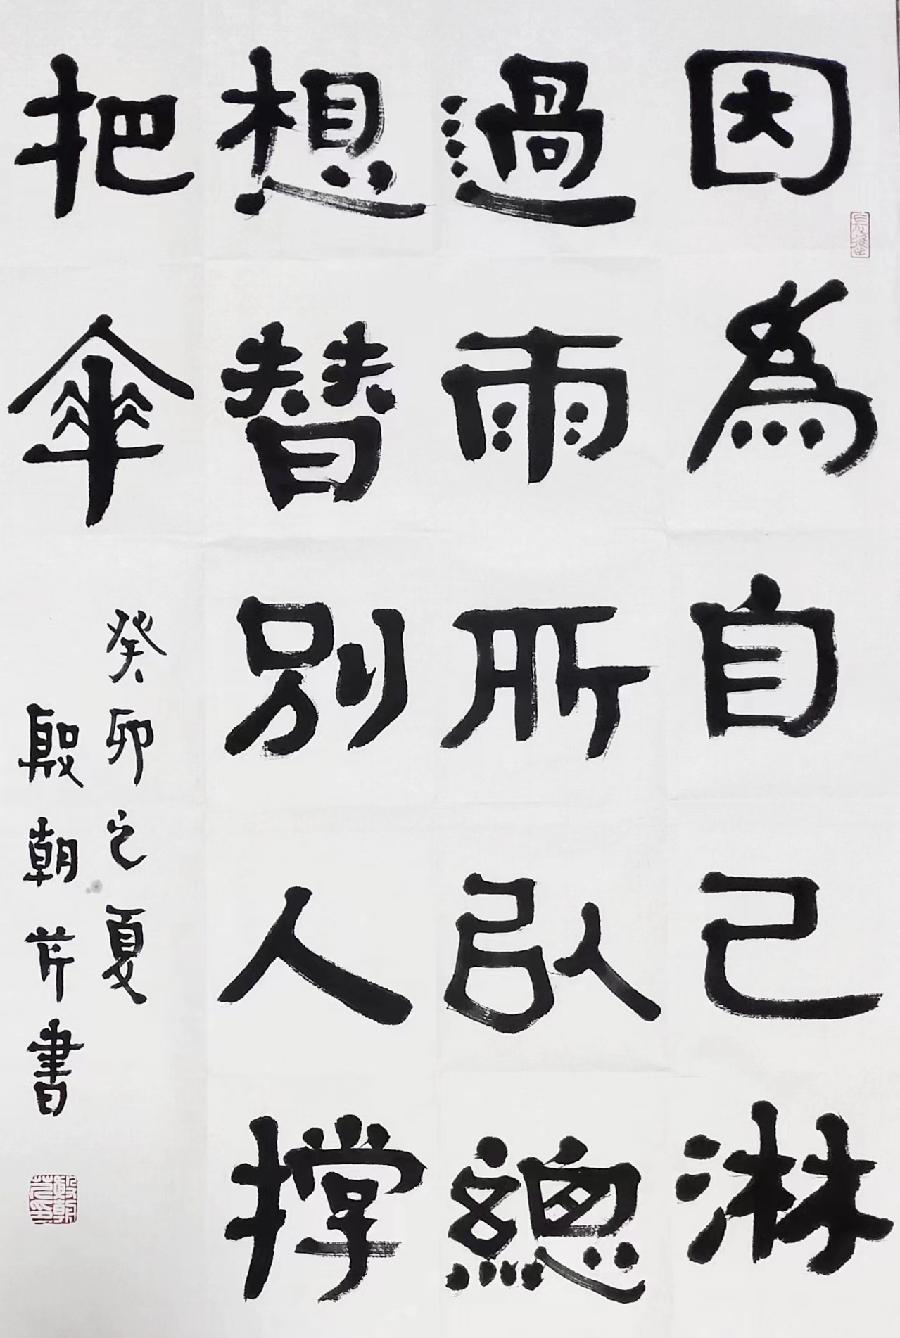 因為自己淋
過雨所以總
想替別人撐
把傘
癸卯之夏
殷朝芹書